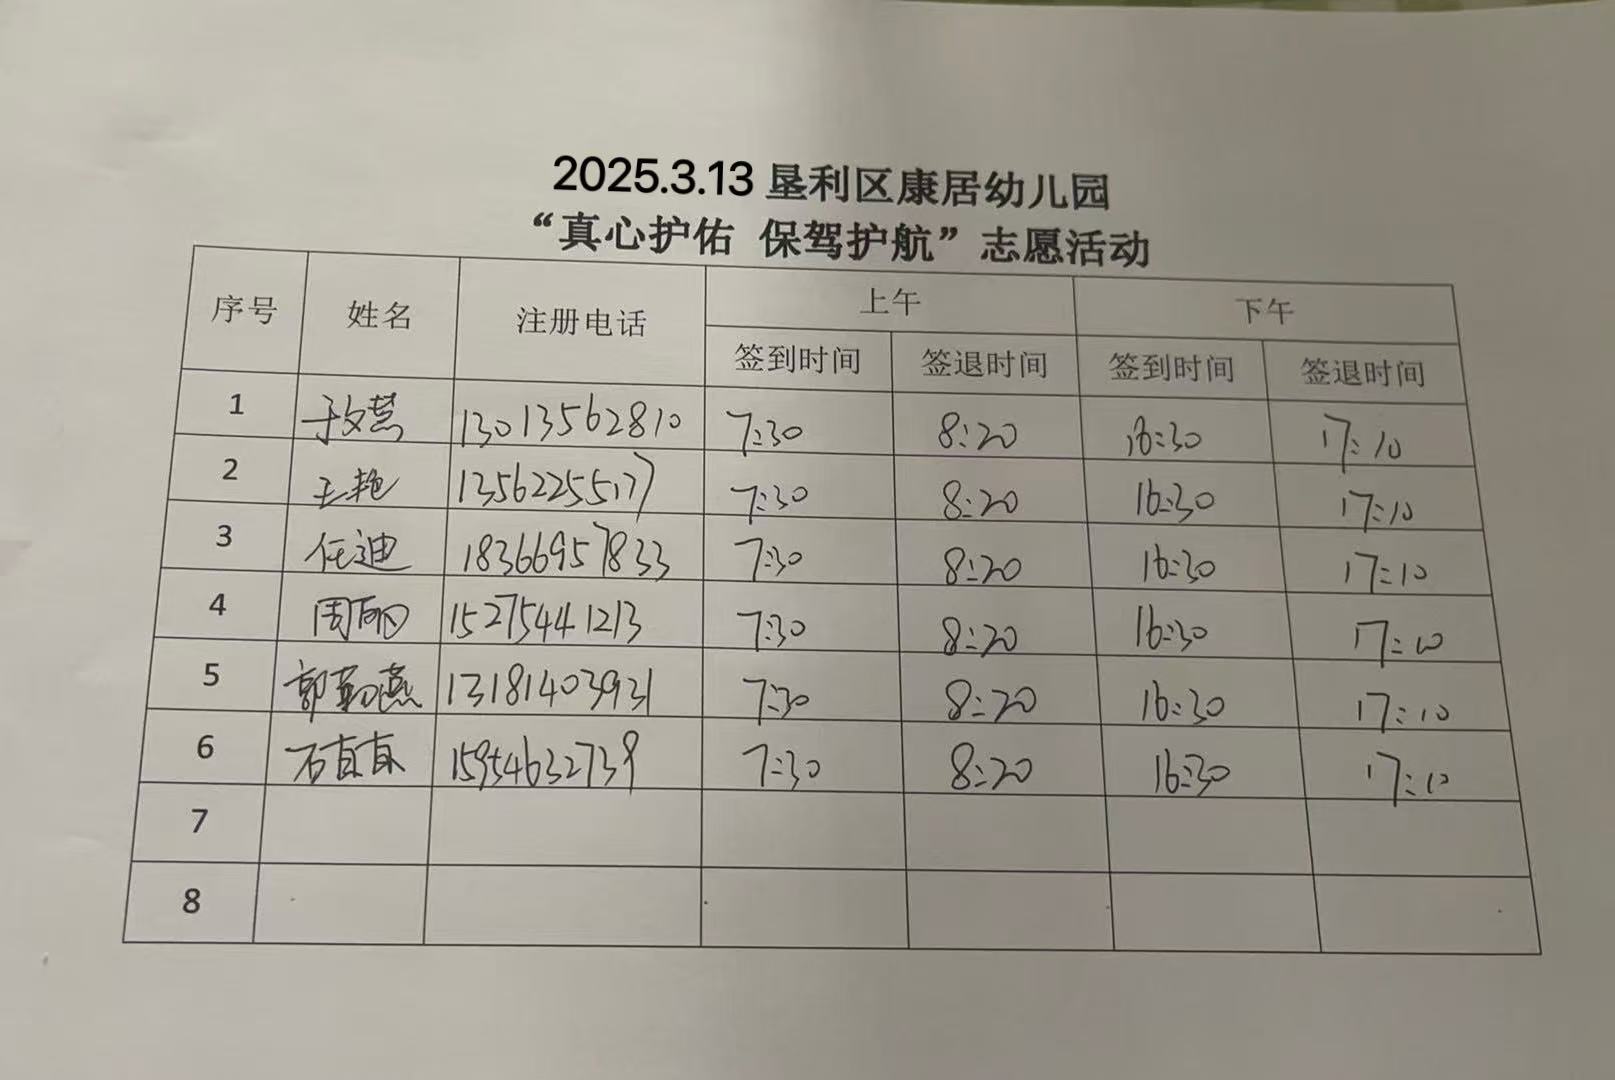 2025.3.13 垦利区康居幼儿园
“真心护佑 保驾护航”志愿活动
序号 姓名 注册电话 上午 下午
签到时间 签退时间 签到时间 签退时间
1 于文慧 13013562810 7:30 8:20 16:30 17:10
2 王艳 13562255177 7:30 8:20 16:30 17:10
3 任迪 18366957833 7:30 8:20 16:30 17:10
4 周丽 15275441213 7:30 8:20 16:30 17:10
5 郭勤燕 13181403931 7:30 8:20 16:30 17:10
6 石真真 15954632739 7:30 8:20 16:30 17:10
7
8